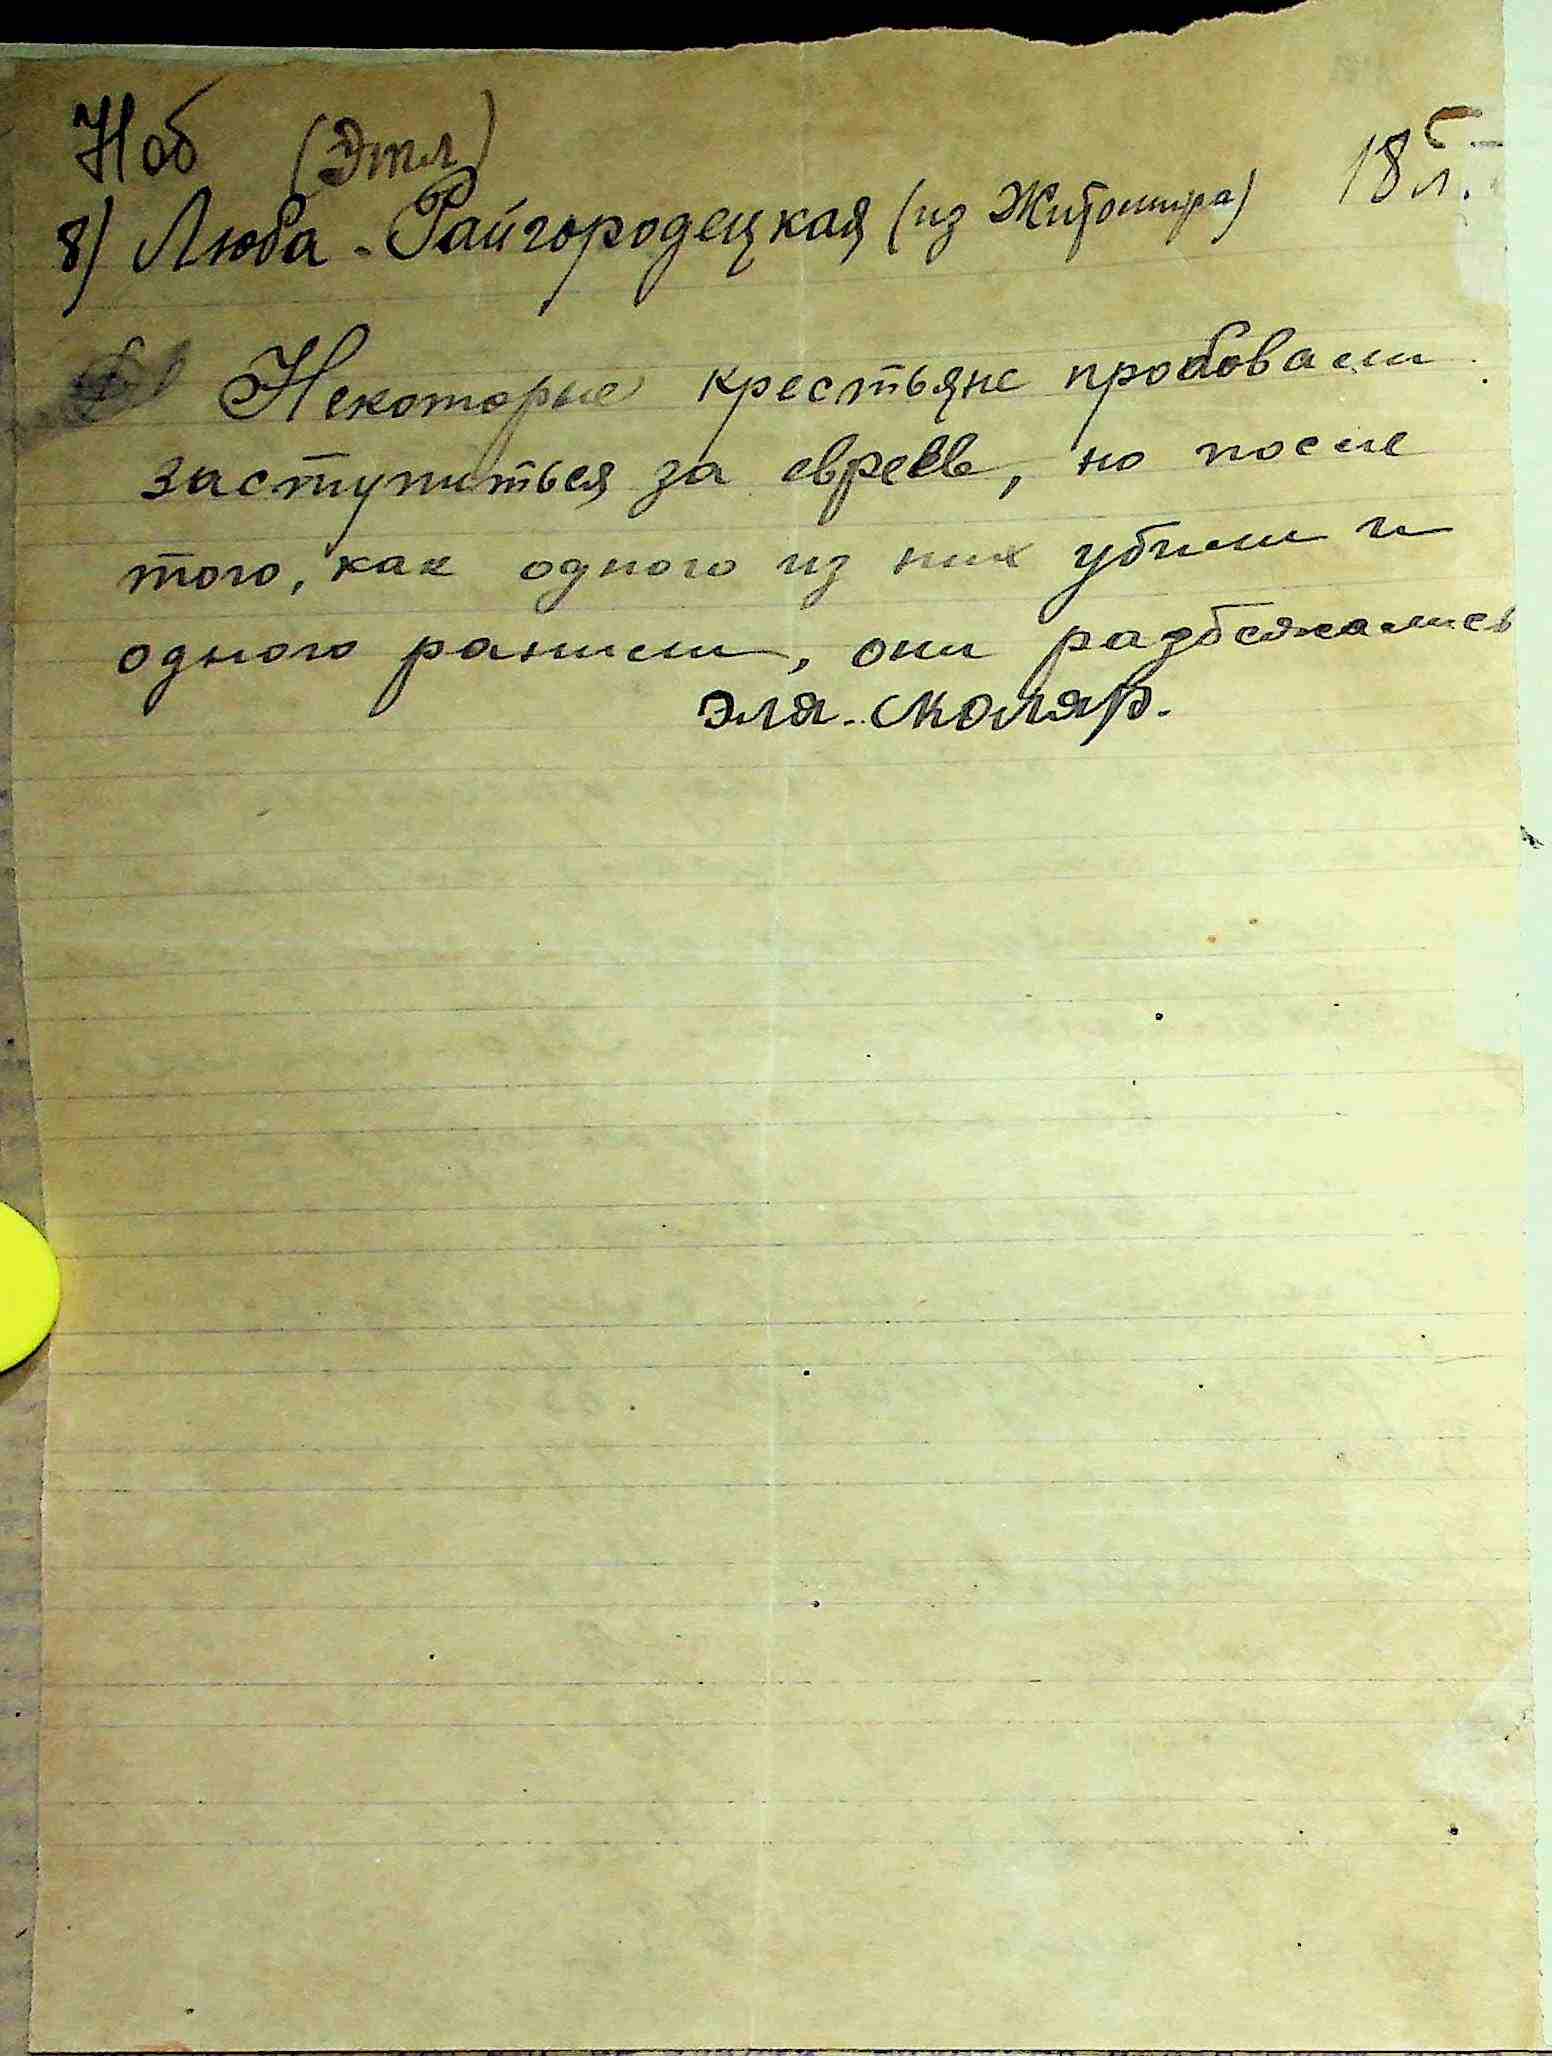 Ноб (Этл)
8) Люба - Райгородецкая (из Житомира) 18 л.
Некоторые крестьяне пробовали
заступиться за евреев, но после
того, как одного из них убили и
одного ранили, они разбежались
Эля. Скомяр.